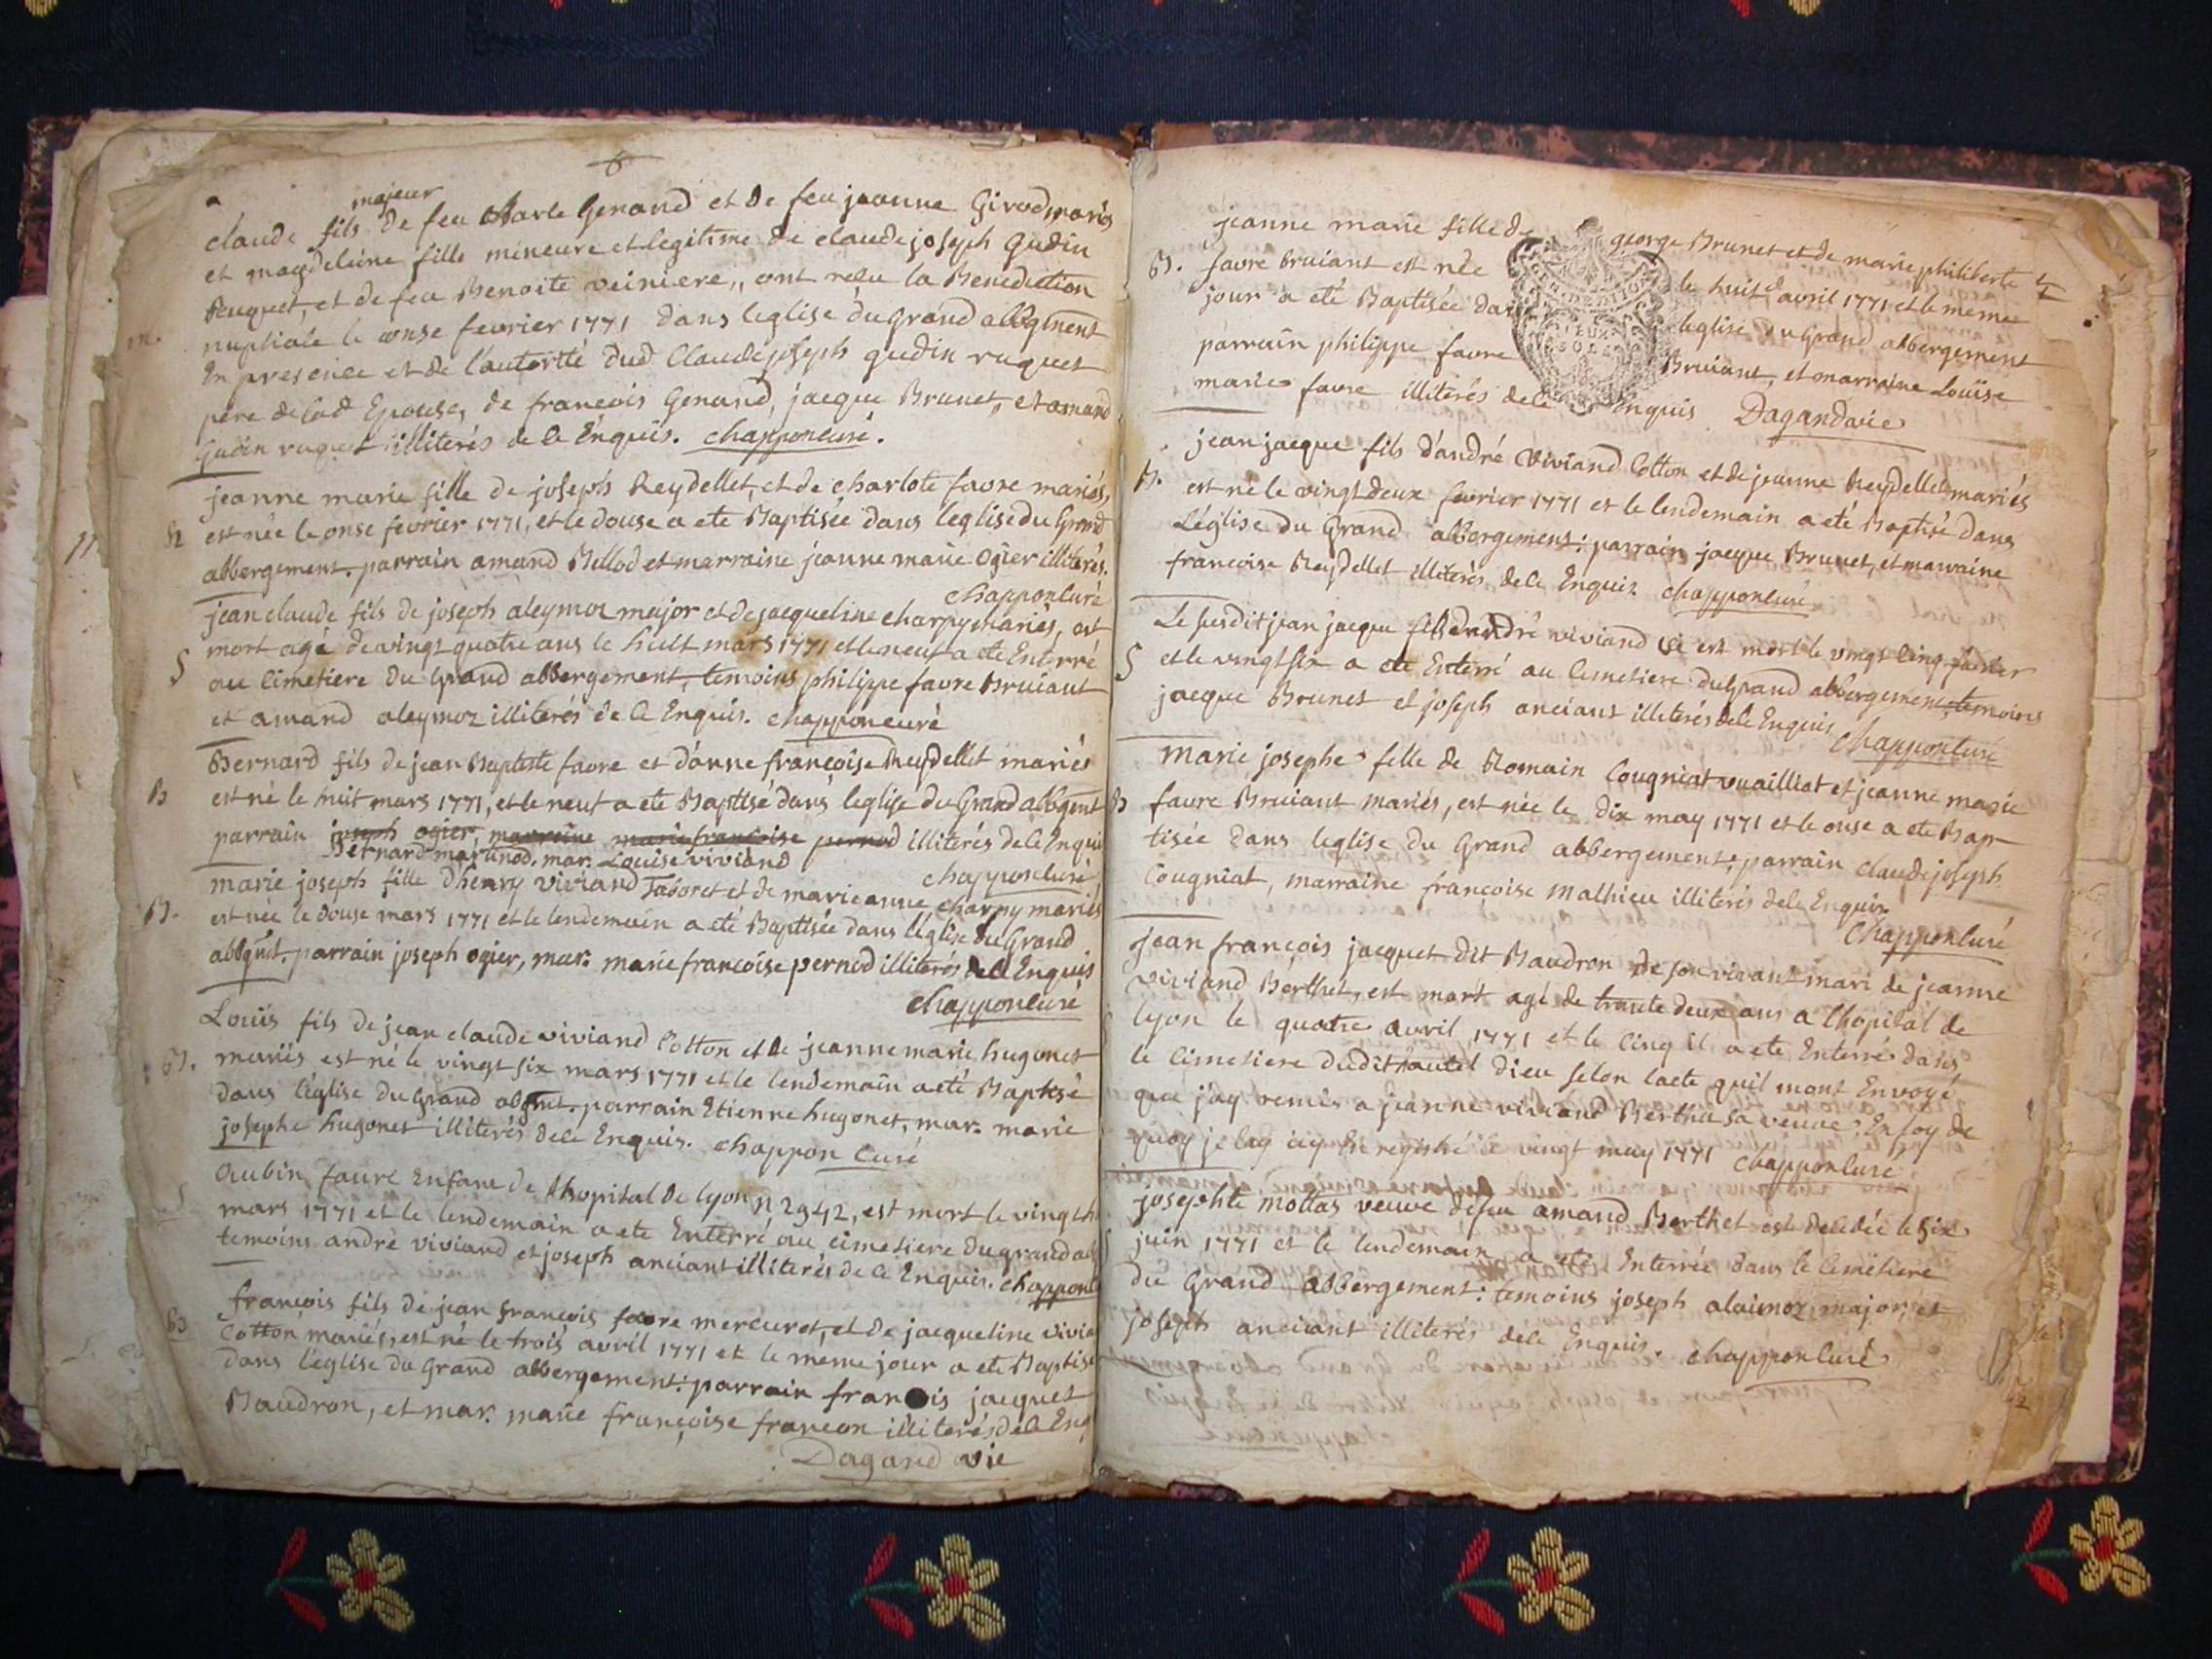 majeur
claude fils de feu Charle Genand et de feu jeanne Girod mariés
et magdeleine fille mineure et legitime de claude joseph Gudin
Ruguet, et de feu Benoite veiniere,, ont recu la Benediction
m. nuptiale le onse fevrier 1771 dans leglise du Grand abbgement
En presence et de l'autorité dud Claude joseph gudin ruguet
père de lad Epouse, de francois Genand, jacque Brunet, et amand
Gudin ruguet illiterés de ce Enquis. chappon curé.
jeanne marie fille de joseph Reydellet, et de charlote favre mariés,
est née le onse fevrier 1771, et le douse a ete Baptisée dans leglise du Grand
abbergement. parrain amand Bellod et marraine jeanne marie Ogier illiterés.
chappon curé
jean claude fils de joseph aleymoz major et de jacqueline charpy mariés, est
mort agé de vingt quatre ans le huit mars 1771 et le neuf a ete Enterré
S au Cimetiere du Grand abbergement, temoins philippe favre Bruiant
et amand aleymoz illiterés de ce Enquis. chappon curé
Bernard fils de jean Baptiste favre et d'anne françoise Reydellet mariés
B est né le huit mars 1771, et le neuf a ete Baptisé dans leglise du Grand abbgent
parrain joseph ogier, marraine marie francoise pernod illiterés de ce Enquis
Bernard martinod. mar. Louise viviand
chappon curé
marie joseph fille d'henry viviand Taboret et de marie anne charpy mariés
B. est née le douse mars 1771 et le lendemain a eté Baptisée dans l'église du Grand
abbgmt. parrain joseph ogier, mar. marie francoise pernod illiterés de ce Enquis
chappon curé
Louis fils de jean claude viviand Cotton et de jeanne marie hugonet
B. mariés est né le vingt six mars 1771 et le lendemain a eté Baptisé
dans l'église du Grand abgmt. parrain Etienne hugonet, mar. marie
josephe hugonet illiterés de ce Enquis. chappon curé
Aubin favre Enfant de l'hopital de lyon n 2942, est mort le vingt h
S mars 1771 et le lendemain a ete Enterré au cimetiere du grand ab
temoins andré viviand et joseph anciant illiterés de ce Enquis. chappon
françois fils de jean françois favre mercuret, et de jacqueline vivia
B Cotton mariés, est né le trois avril 1771 et le meme jour a ete Baptisé
dans l'église du Grand abbergement: parrain francois jacquet
Baudron, et mar. marie françoise françon illiterés de ce Enq
Dagand vie
jeanne marie fille de george Brunet et de marie philiberte
B. favre bruiant est née le huit avril 1771 et le meme
jour a eté Baptisée dans leglise du Grand abbergement
parrain philippe favre Bruiant, et marraine Louise
marie favre illiterés de ce Enquis Dagand vie
jean jacque fils d'andré viviand Cotton et de jeanne Reydellet mariés
B. est né le vingt deux fevrier 1771 et le lendemain a eté Baptisé dans
L'église du Grand abbergement: parrain jacque Brunet, et marraine
francoise Reydellet illiterés de ce Enquis chappon curé
Le susdit jean jacque fils d'andré viviand est mort le vingt cinq fevrier
S et le vingt six a ete Enterré au Cimetiere du Grand abbergement, temoins
jacque Brunet et joseph anciant illiterés de ce Enquis chappon curé
marie josephe fille de Romain Cougniat vuailliat et jeanne marie
B favre Bruiant mariés, est née le dix may 1771 et le onse a ete Bap-
tisée dans leglise du Grand abbergement: parrain claude joseph
Cougniat, marraine francoise mathieu illiterés de ce Enquis
chappon curé
jean françois jacquet dit Baudron de son vivant mari de jeanne
viviand Berthet, est mort agé de trante deux ans a l'hopital de
lyon le quatre avril 1771 et le cinq il a ete Enterré dans
le Cimetiere dudit hautel Dieu selon lacte quil mont Envoyé
que jay remis a jeanne viviand Berthet sa veuve: En foy de
quoy je lay icy Enregistré le vingt may 1771 chappon curé
josephte mottas veuve de feu amand Berthet est decedée le six
juin 1771 et le lendemain a ete Enterrée dans le cimetiere
du Grand abbergement: temoins joseph alaimoz major, et
joseph anciant illiterés de ce Enquis. chappon curé